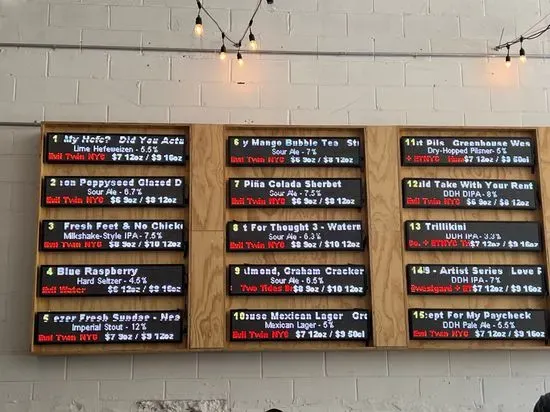 1 My Hefe? Did You Actu
Lime Hefeweizen - 5.5%
Evil Twin NYC $7 12oz / $9 16oz
2 on Poppyseed Glazed D
Sour Ale - 6.7%
Evil Twin NYC $6 9oz / $8 12oz
3 Fresh Feet & No Chick
Milkshake-Style IPA - 7.5%
Evil Twin NYC $8 9oz / $10 12oz
4 Blue Raspberry
Hard Seltzer - 4.5%
Evil Water 12oz / $9 16oz
5 ezer Fresh Sundar - Nea
Imperial Stout - 12%
Evil Twin NYC $7 9oz / $9 12oz
6 y Mango Bubble Tea St
Sour Ale - 7%
Evil Twin NYC $6 9oz / $8 12oz
7 Piña Colada Sherbet
Sour Ale - 7.5%
Evil Twin NYC $6 9oz / $8 12oz
8 t For Thought 3 - Waterm
Sour Ale - 6.3%
Evil Twin NYC $8 9oz / $10 12oz
9 almond, Graham Cracker
Sour Ale - 6.5%
Two Tides $8 9oz / $10 12oz
10 ouse Mexican Lager Gr
Mexican Lager - 5%
Evil Twin NYC $7 12oz / $9 50cl
11 st Pils Greenhouse Wes
Dry-Hopped Pilsner - 5%
+ ETNYC $7 12oz / $9 50cl
12 ild Take With Your Rent
DDH DIPA - 8%
Evil Twin NYC $6 9oz / $8 12oz
13 Trillikini
DDH IPA
+ ET $7 12oz / $9 16oz
14 - Artist Series Love
DDH IPA - 7%
Westgard + ET $7 12oz / $9 16oz
15 cept For My Paycheck
DDH Pale Ale - 5.5%
Evil Twin NYC $7 12oz / $9 16oz